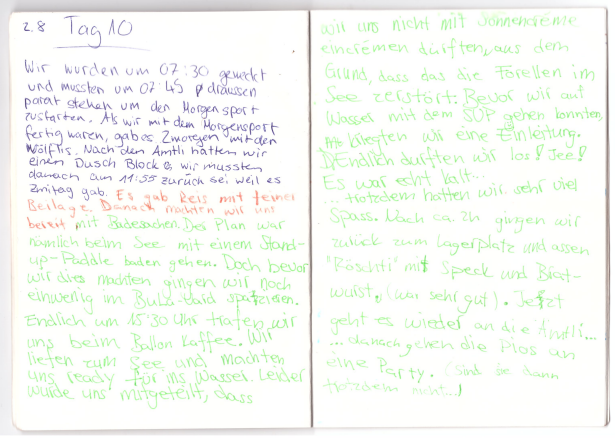 2.8 Tag 10
Wir wurden um 07:30 geweckt
und mussten um 07:45 draussen
parat stehen um den Morgensport
zustarten. Als wir mit dem Morgensport
fertig waren, gab es Zmorgen mit den
Wölflis. Nach dem Ämtli hatten wir
einen Dusch Block & wir mussten
danach um 11:55 zurück sei weil es
Zmitag gab. Es gab Reis mit feiner
Beilage. Danach machten wir uns
bereit mit Badesachen. Der Plan war
nämlich beim See mit einem Stand-
up-Paddle baden gehen. Doch bevor
wir dies machten gingen wir noch
einwenig im spazieren.
Endlich um 15:30 Uhr trafen wir
uns beim Ballon Kaffee. Wir
liefen zum See und machten
uns ready für ins Wasser. Leider
wurde uns mitgeteilt, dass
wir uns nicht mit Sonnencrème
eincrèmen dürften, aus dem
Grund, dass das die Forellen im
See zerstört. Bevor wir auf
Wasser mit dem SUP gehen konnten,
kriegten wir eine Einleitung.
Endlich durften wir los! Jee!
Es war echt kalt...
...trotzdem hatten wir sehr viel
Spass. Nach ca. 2h gingen wir
zurück zum Lagerplatz und assen
"Röschti" mit Speck und Brat-
wurst, (war sehr gut). Jetzt
geht es wieder an die Ämtli...
... danach gehen die Pios an
eine Party. (sind sie dann
trotzdem nicht...)